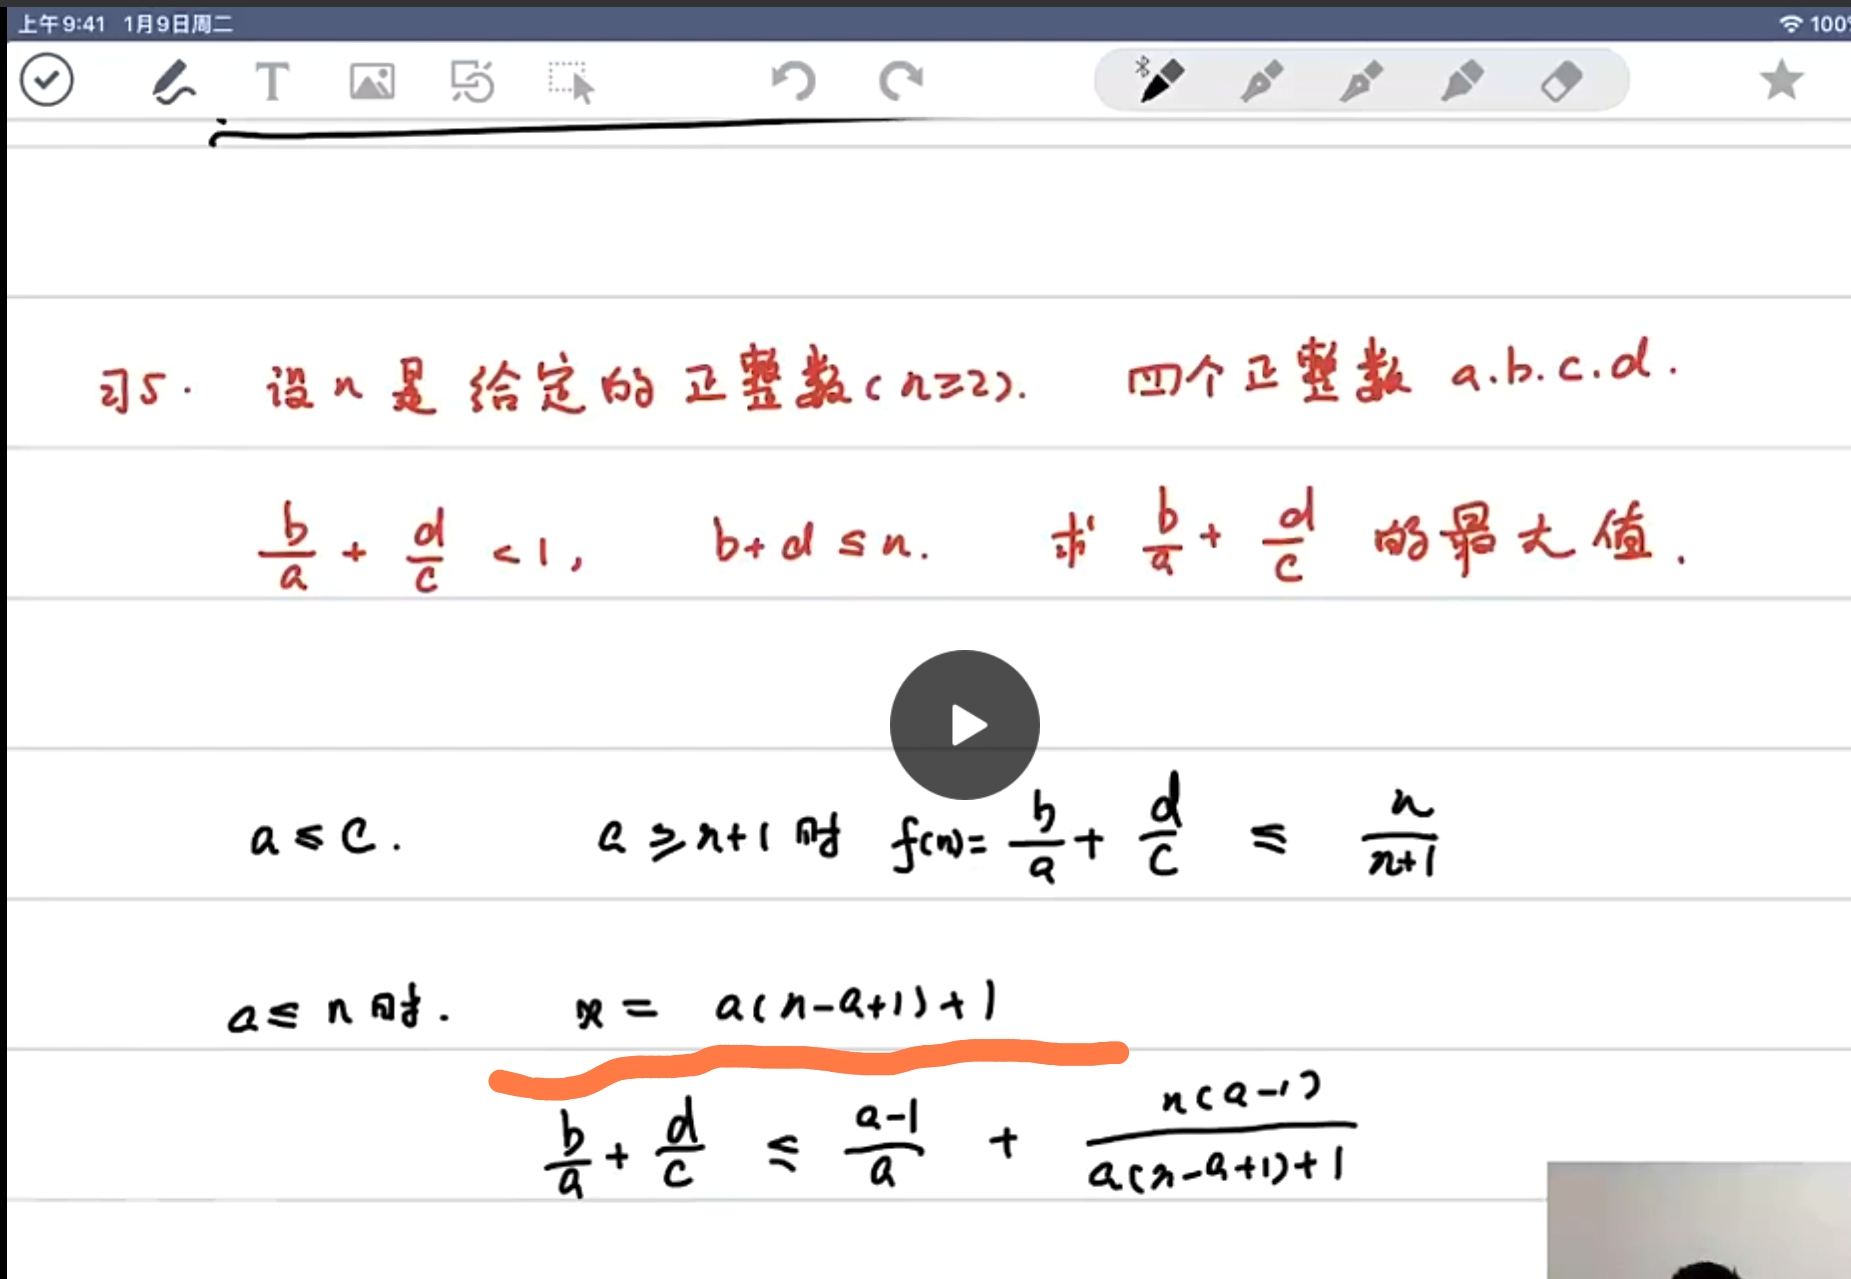 上午9:41 1月9日周二 100%
习5. 设n是给定的正整数(n≥2). 四个正整数 a.b.c.d.
b/a + d/c <1, b+d≤n. 求 b/a + d/c 的最大值.
a≤c. a≥n+1时 f(n)= b/a + d/c ≤ n/(n+1)
a≤n时. x= a(n-a+1)+1
b/a + d/c ≤ (a-1)/a + n(a-1)/(a(n-a+1)+1)